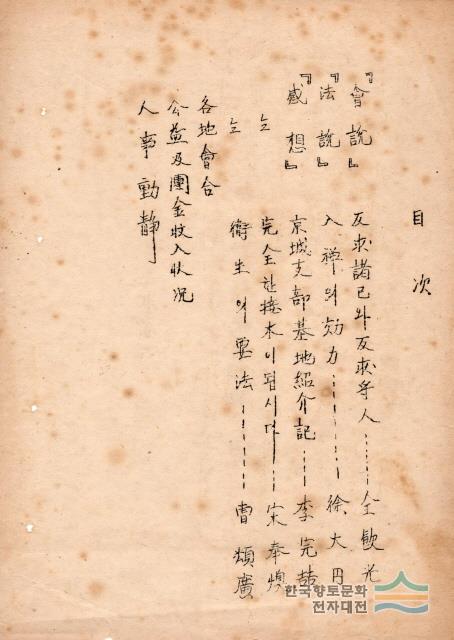 目次
『會說』 反求諸己와 反求乎人……全歓光
『法說』 入禪의 効力……徐大円
『感想』 京城支部基地紹介記……李完喆
〃 完全한 接木이 됩시다……宋奉煥
〃 衛生의 要法……曺頌廣
各地會合
公益及團金收入狀况
人事動靜
한국향토문화
전자대전